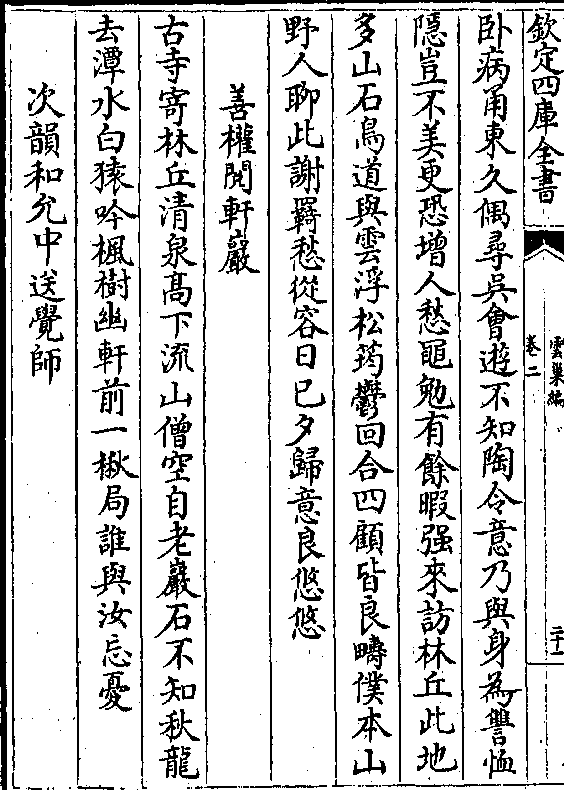 欽定四庫全書
雲巢編
卷二
二十一
卧病甬東久偶尋吳會遊不知陶令意乃與身為讐恤
隱豈不美更恐增人愁黽勉有餘暇强來訪林丘此地
多山石鳥道與雲浮松筠鬱回合四顧皆良疇僕本山
野人聊此謝羇愁從容日已夕歸意良悠悠
善權開軒巖
古寺寄林丘清泉高下流山僧空自老巖石不知秋龍
去潭水白猿吟楓樹幽軒前一楸局誰與汝忘憂
次韻和允中送覺師